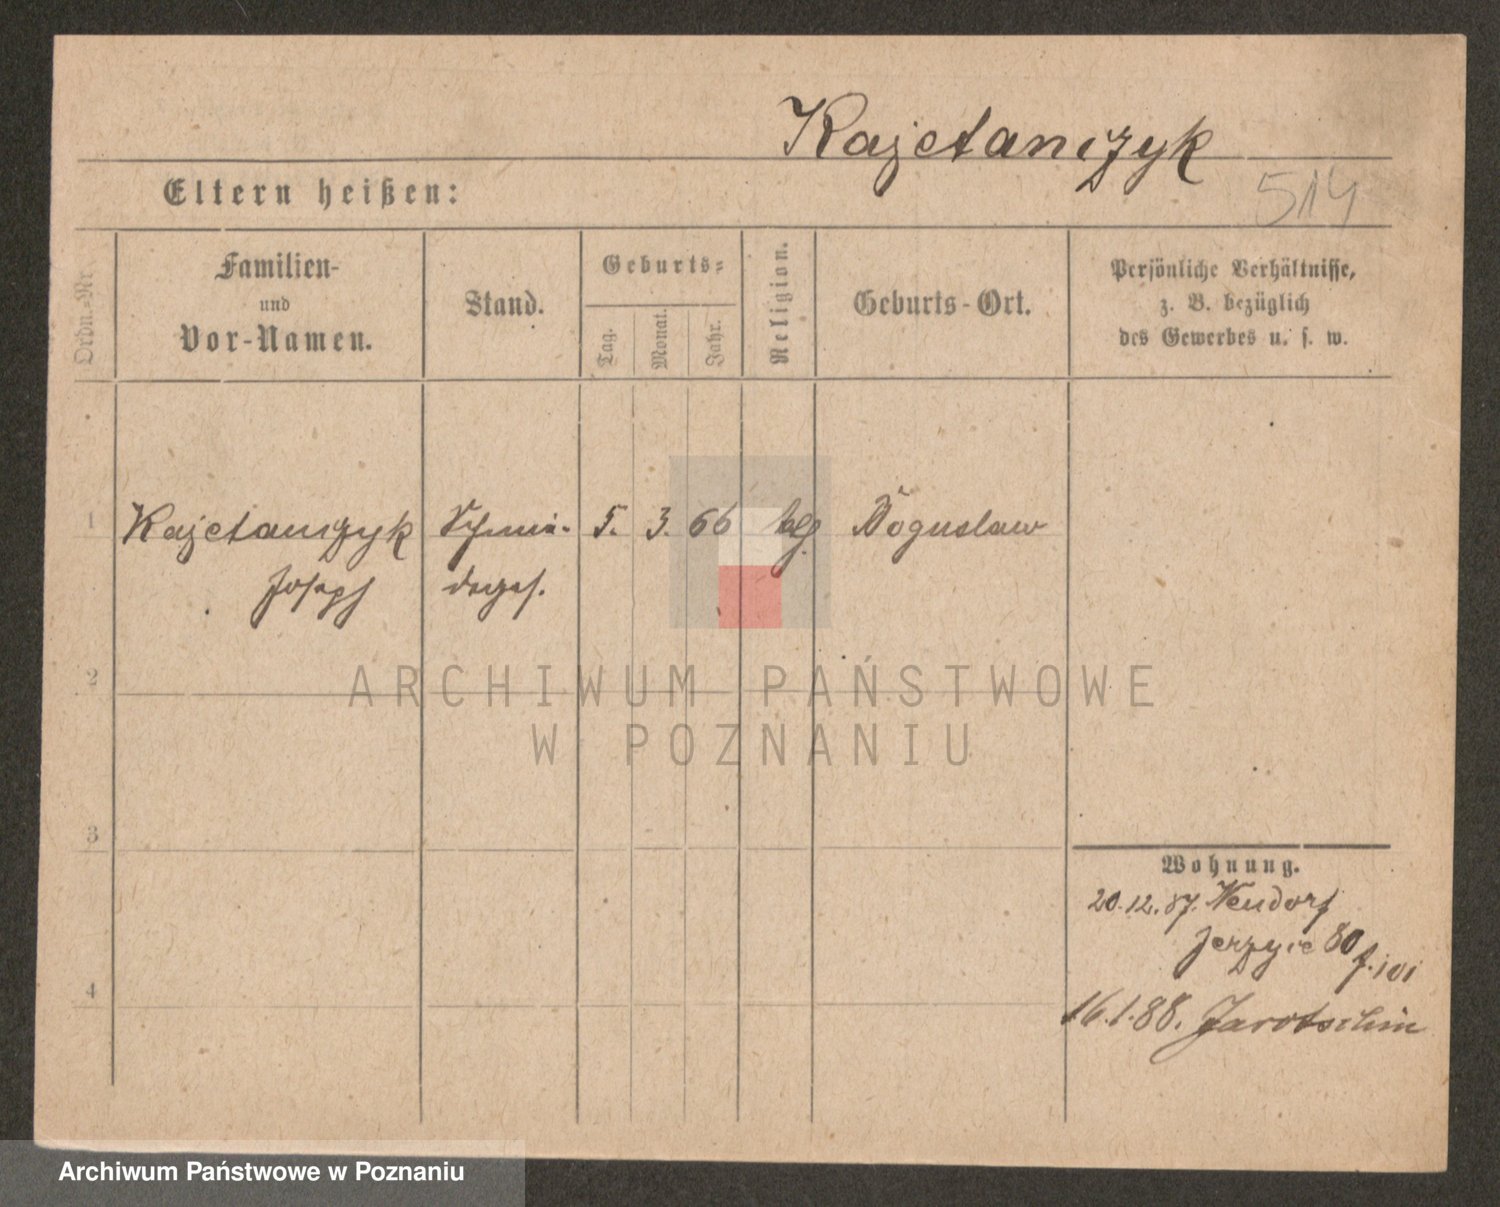 Kajetanczyk
Eltern heißen:
514
Ordn.-Nr
Familien-
und
Vor-Namen.
Stand.
Geburts-
Tag.
Monat.
Jahr.
Religion.
Geburts-Ort.
Persönliche Verhältnisse,
z. B. bezüglich
des Gewerbes u. s. w.
1 Kajetanczyk Schmie- 5. 3. 66 Boguslaw
Joseph deges.
2
ARCHIWUM PAŃSTWOWE
W POZNANIU
3
Wohnung.
20.12.87. Neudorf
Jerzyce 80
4
16.1.88. Jarotschin
Archiwum Państwowe w Poznaniu